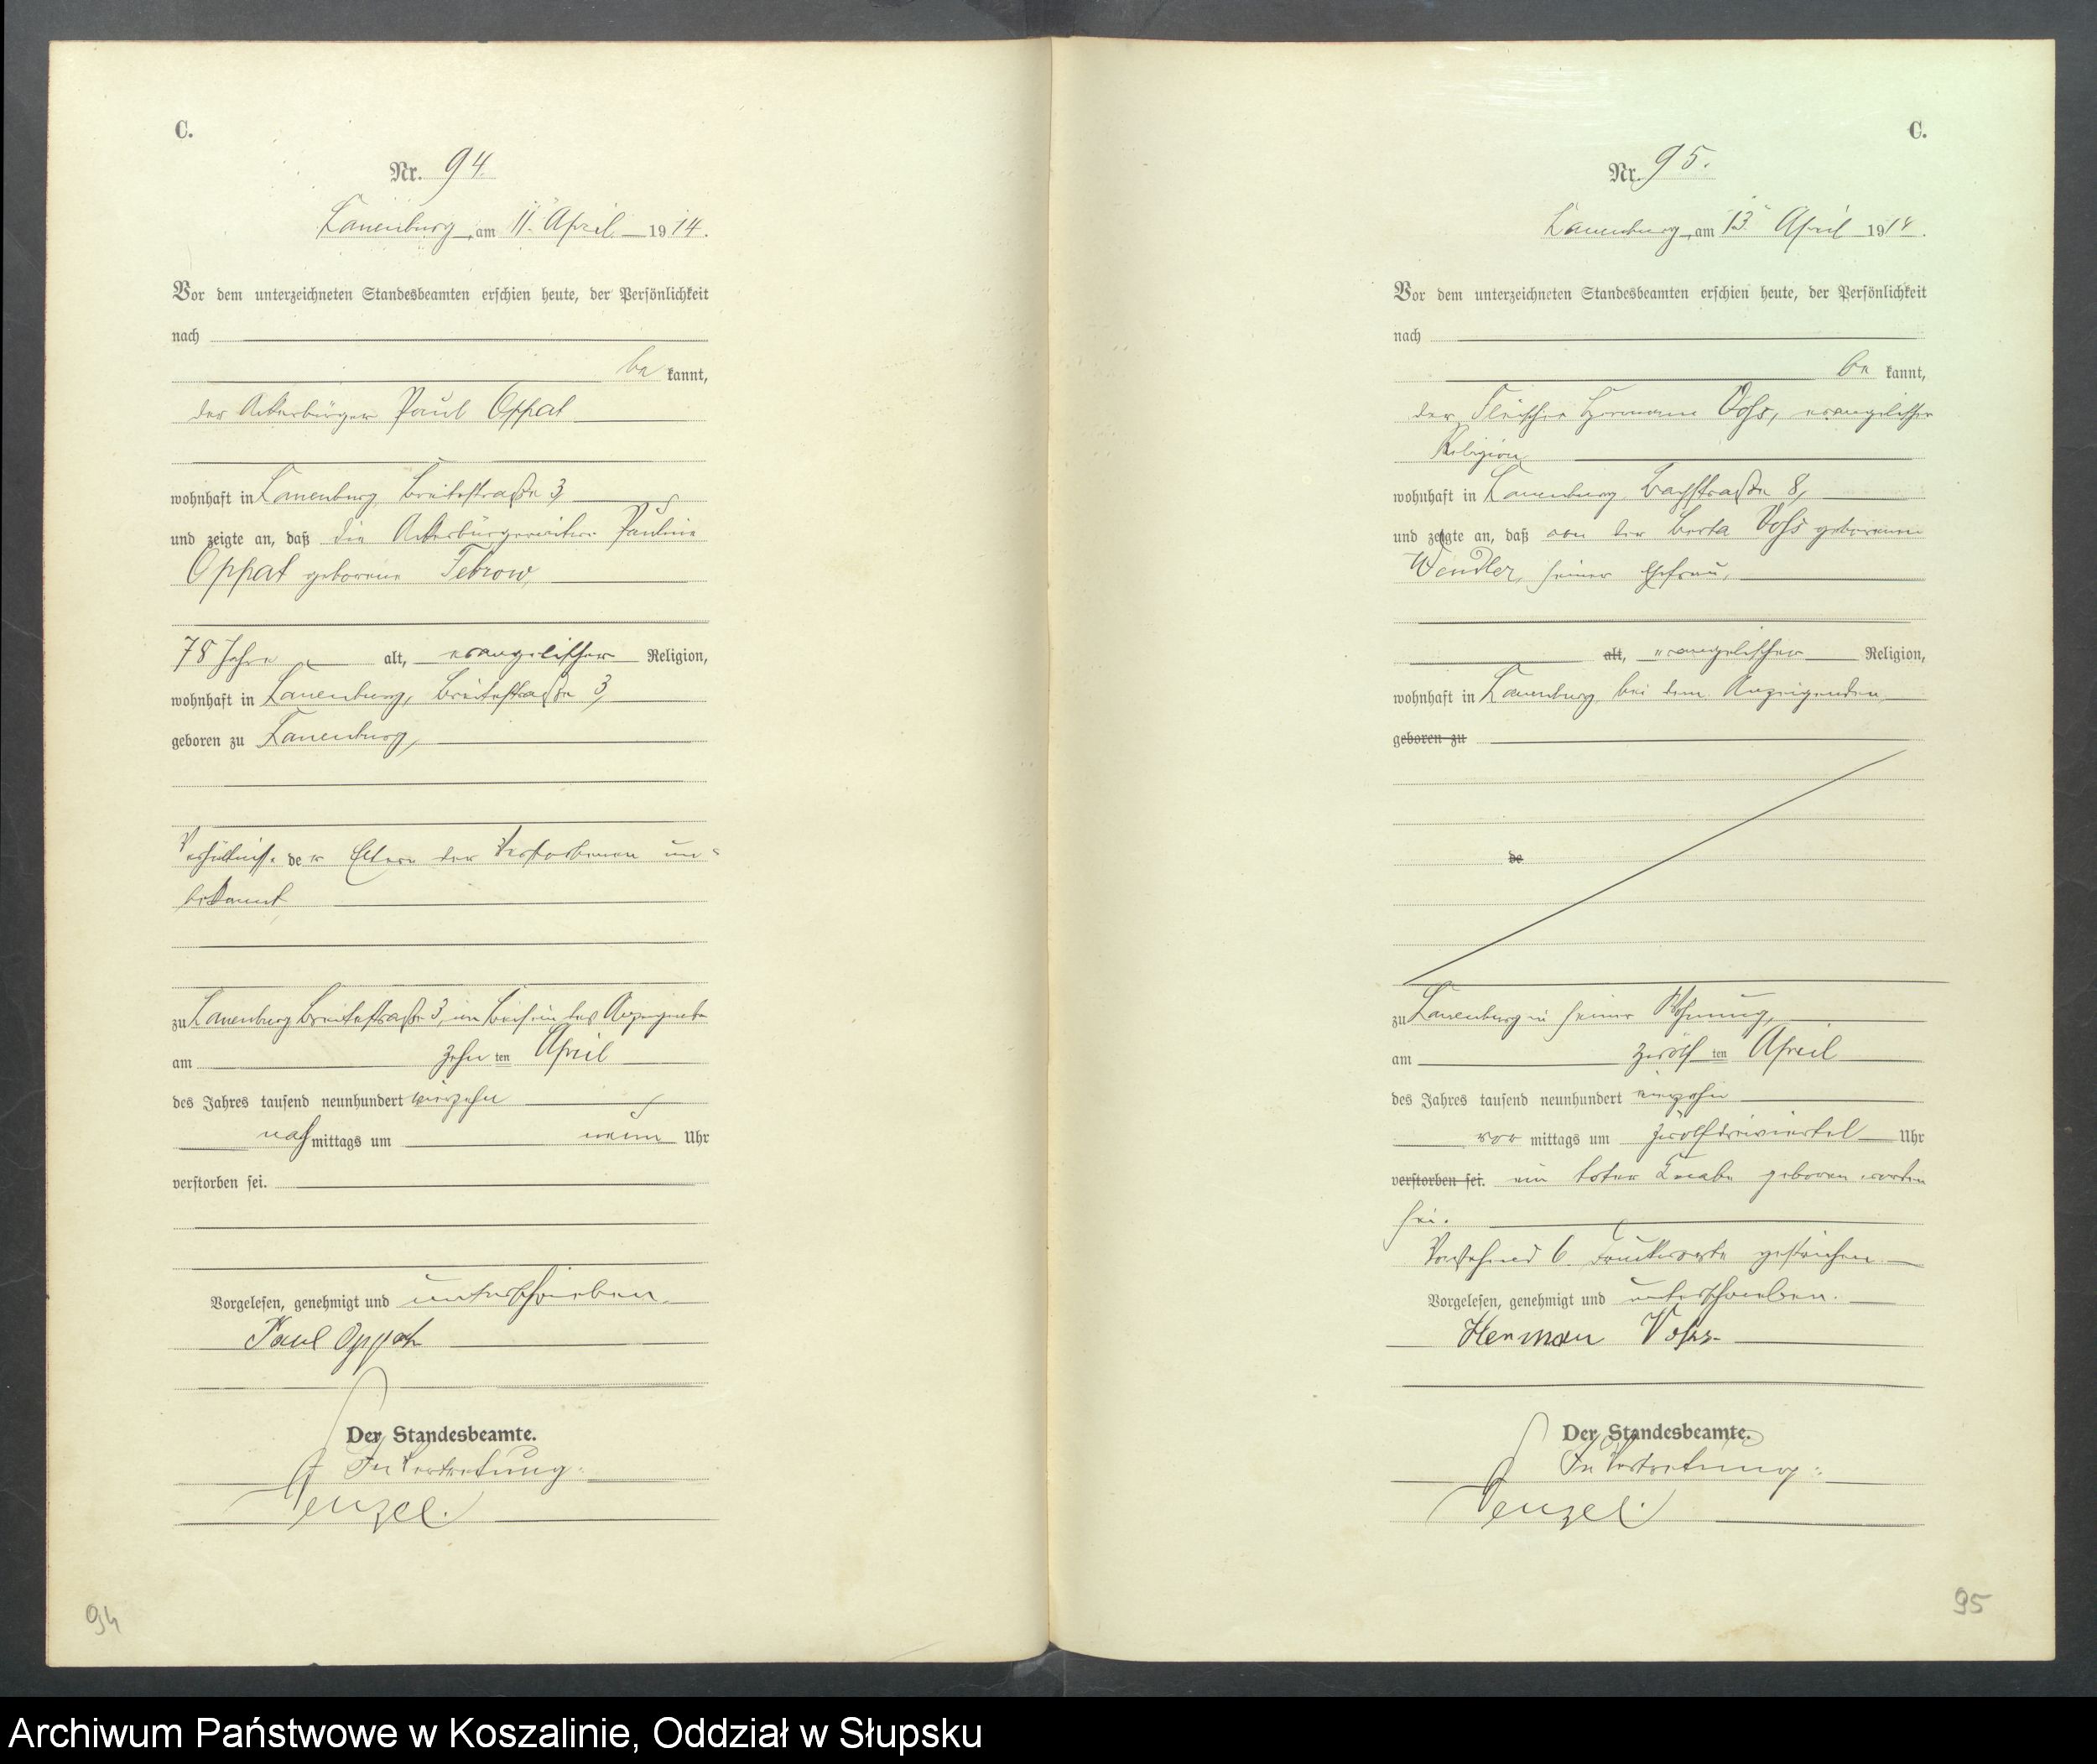 C.
Nr. 94.
Lauenburg, am 11. April 1914.
Vor dem unterzeichneten Standesbeamten erschien heute, der Persönlichkeit
nach
be kannt,
der Ackerbürger Paul Oppat
wohnhaft in Lauenburg Breitestraße 3,
und zeigte an, daß die Ackerbürgerwitwe Pauline
Oppat geborene Tebrow,
78 Jahre alt, evangelischer Religion,
wohnhaft in Lauenburg, Breitestraße 3,
geboren zu Lauenburg,
Verhältnisse der Eltern der Verstorbenen un-
bekannt
zu Lauenburg Breitestraße 3, im Beisein des Anzeigenden
am zehn ten April
des Jahres tausend neunhundert vierzehn
nach mittags um neun Uhr
verstorben sei.
Vorgelesen, genehmigt und unterschrieben.
Paul Oppat
Der Standesbeamte.
In Vertretung:
Penzel.
94
C.
Nr. 95.
Lauenburg, am 13. April 1914.
Vor dem unterzeichneten Standesbeamten erschien heute, der Persönlichkeit
nach
be kannt,
der Fleischer Hermann Vohs, evangelischer
Religion
wohnhaft in Lauenburg Bachstraße 8,
und zeigte an, daß von der Berta Vohs geborenen
Wendler, seiner Ehefrau,
alt, evangelischer Religion,
wohnhaft in Lauenburg bei dem Anzeigenden
geboren zu
de
zu Lauenburg in seiner Wohnung,
am zwölf ten April
des Jahres tausend neunhundert vierzehn
vor mittags um zwölfdreiviertel Uhr
verstorben sei. ein toter Knabe geboren worden
sei.
Vorstehend 6 Druckworte gestrichen.
Vorgelesen, genehmigt und unterschrieben.
Herman Vohs
Der Standesbeamte.
In Vertretung:
Penzel.
95
Archiwum Państwowe w Koszalinie, Oddział w Słupsku